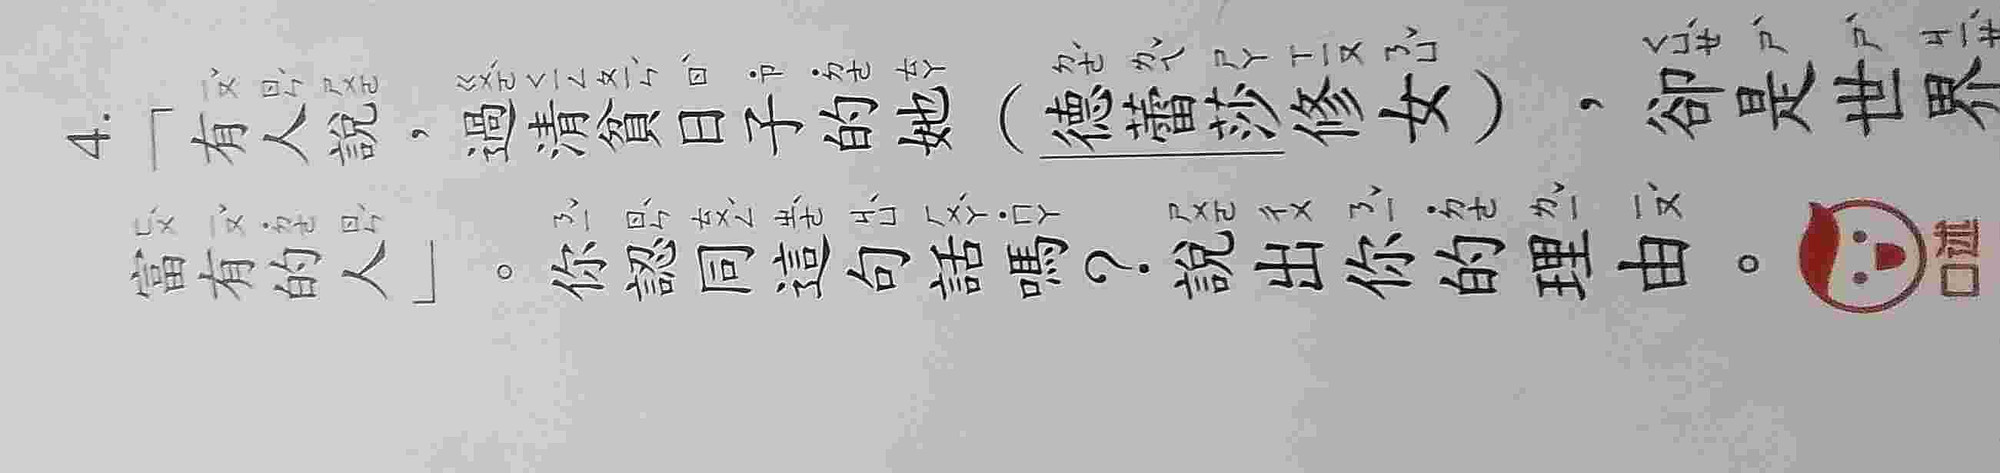 4.「有人說，過清貧日子的她（德蕾莎修女），卻是世界
富有的人」。你認同這句話嗎？說出你的理由。
口述